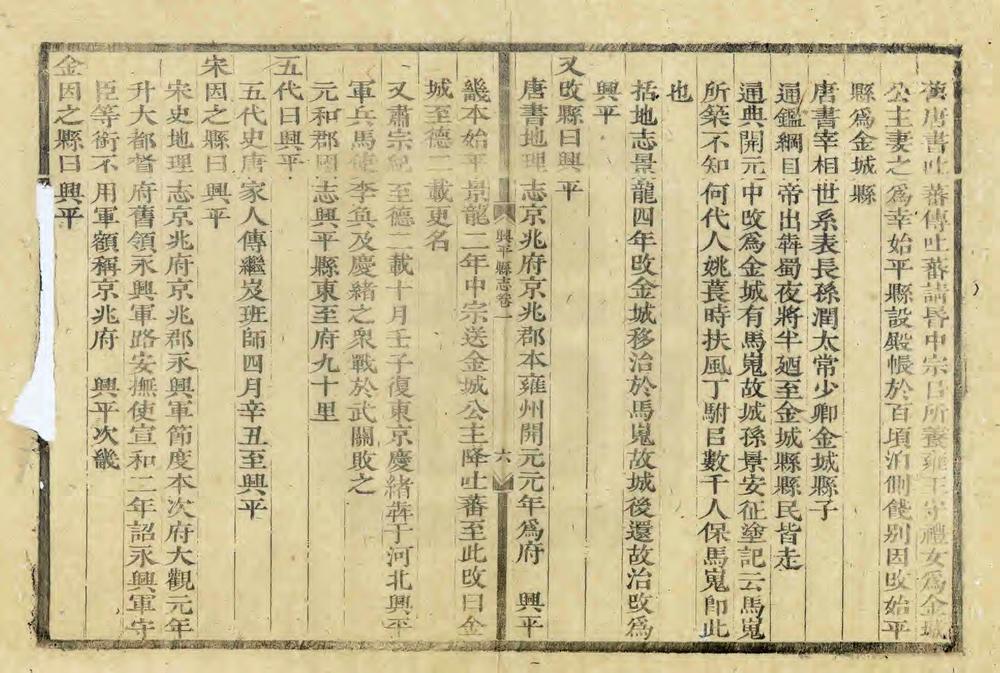 舊唐書吐蕃傳吐蕃請昬中宗㠯所養雍王守禮女爲金城
公主妻之爲幸始平縣設殿帳於百頃泊側餞别因攺始平
縣爲金城縣
唐書宰相世系表長孫潤太常少卿金城縣子
通鑑綱目帝出犇蜀夜將半廼至金城縣縣民皆走
通典開元中攺爲金城有馬嵬故城孫景安征塗記云馬嵬
所築不知何代人姚萇時扶風丁騑㠯數千人保馬嵬卽此
也
括地志景龍四年攺金城移治於馬嵬故城後還故治攺爲
興平
又攺縣曰興平
唐書地理志京兆府京兆郡本雍州開元元年爲府 興平
興平縣志卷一
六
畿本始平景龍二年中宗送金城公主降吐蕃至此攺曰金
城至德二載更名
又肅宗紀至德二載十月壬子復東京慶緒犇于河北興平
軍兵馬使李奐及慶緒之衆戰於武關敗之
元和郡國志興平縣東至府九十里
五代曰興平
五代史唐家人傳繼岌班師四月辛丑至興平
宋因之縣曰興平
宋史地理志京兆府京兆郡永興軍節度本次府大觀元年
升大都督府舊領永興軍路安撫使宣和二年詔永興軍守
臣等銜不用軍額稱京兆府 興平次畿
金因之縣曰興平